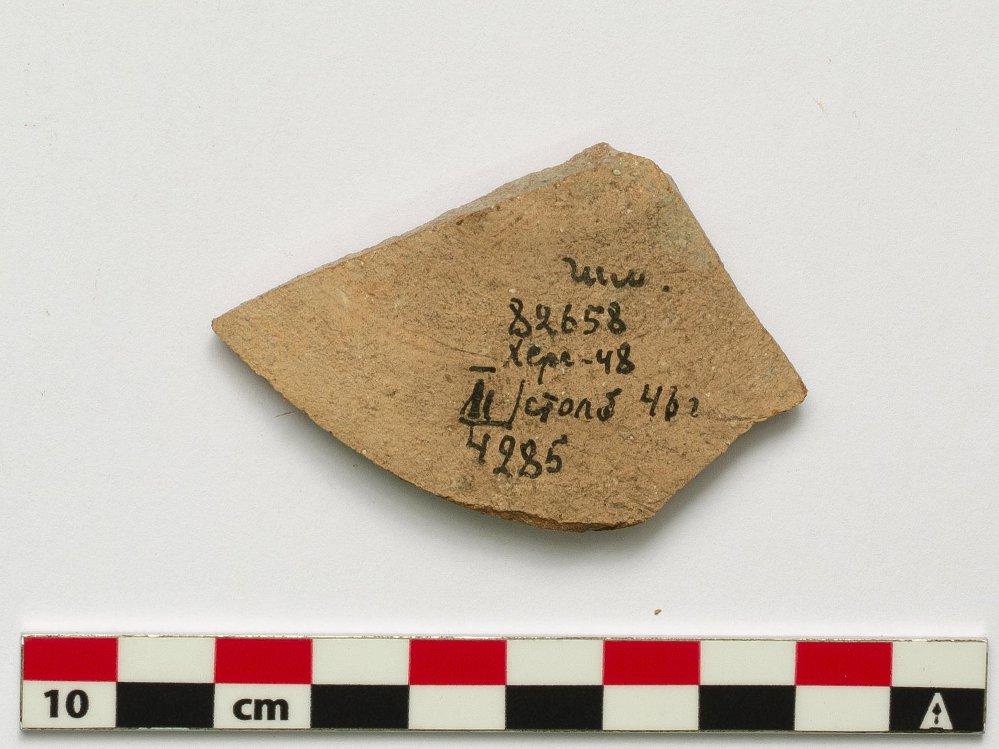 гим.
82658
Херс-48
II/столб 46г
4285
10 cm